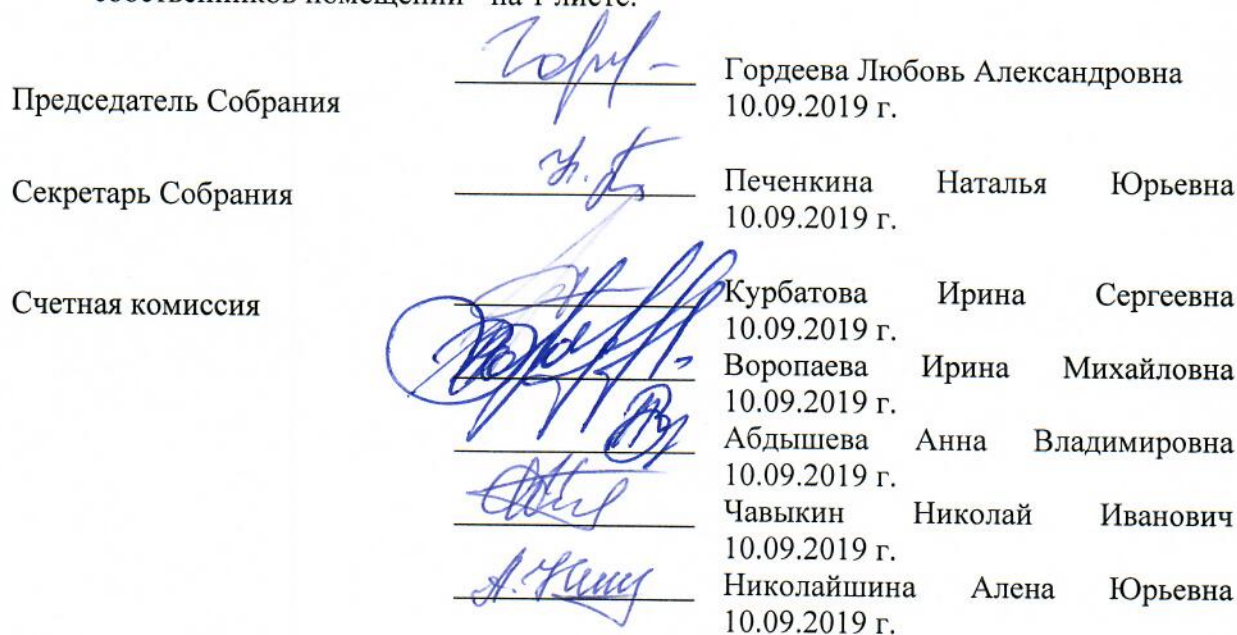 собственников помещений - на 1 листе.
Гордеева Любовь Александровна
Председатель Собрания
10.09.2019 г.
Секретарь Собрания
Печенкина Наталья Юрьевна
10.09.2019 г.
Счетная комиссия
Курбатова Ирина Сергеевна
10.09.2019 г.
Воропаева Ирина Михайловна
10.09.2019 г.
Абдышева Анна Владимировна
10.09.2019 г.
Чавыкин Николай Иванович
10.09.2019 г.
Николайшина Алена Юрьевна
10.09.2019 г.